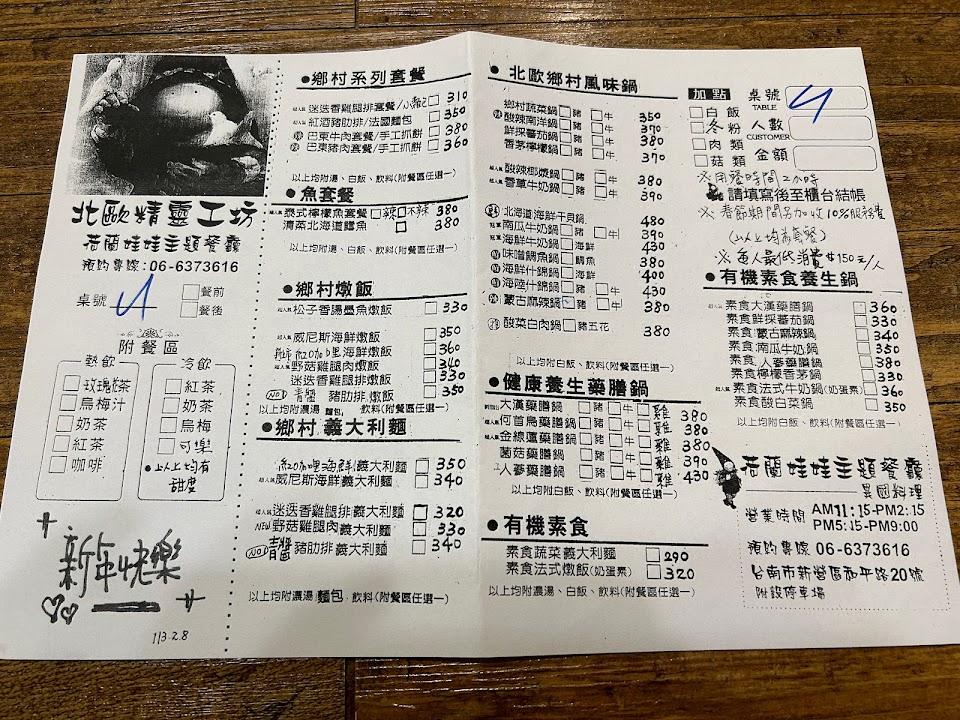 北歐精靈工坊
荷蘭娃娃主題餐廳
預約專線:06-6373616
桌號 4
餐前
餐後
附餐區
熱飲
玫瑰花茶
烏梅汁
奶茶
紅茶
咖啡
冷飲
紅茶
奶茶
烏梅
可樂
•以上均有
甜度
新年快樂
113.2.8
●鄉村系列套餐
迷迭香雞腿排套餐 310
紅酒豬肋排/法國麵包 350
巴東牛肉套餐/手工抓餅 380
巴東豬肉套餐/手工抓餅 360
以上均附湯、白飯、飲料(附餐區任選一)
●魚套餐
泰式檸檬魚套餐 辣 不辣 380
清蒸北海道鱈魚 380
以上均附濃湯、白飯、飲料(附餐區任選一)
●鄉村燉飯
松子香腸墨魚燉飯 330
威尼斯海鮮燉飯 350
紅咖哩海鮮燉飯 360
野菇雞腿肉燉飯 340
迷迭香雞腿排燉飯 330
青醬 豬肋排.燉飯 350
以上均附濃湯 麵包、飲料(附餐區任選一)
●鄉村 義大利麵
紅咖哩海鮮義大利麵 350
威尼斯海鮮義大利麵 340
迷迭香雞腿排義大利麵 320
NEW 野菇雞腿肉義大利麵 330
NO1 青醬 豬肋排義大利麵 340
以上均附濃湯 麵包、飲料(附餐區任選一)
●北歐鄉村風味鍋
鄉村蔬菜鍋 豬 牛 350
酸辣南洋鍋 豬 牛 370
鮮採番茄鍋 豬 牛 380
香茅檸檬鍋 豬 牛 370
酸辣椰漿鍋 豬 牛 380
香草牛奶鍋 豬 牛 390
北海道海鮮干貝鍋 480
南瓜牛奶鍋 豬 牛 390
海鮮牛奶鍋 海鮮 430
味噌鯛魚鍋 鯛魚 380
海鮮什錦鍋 海鮮 400
海陸什錦鍋 豬 牛 430
蒙古麻辣鍋 豬 牛 380
酸菜白肉鍋 豬五花 380
以上均附白飯、飲料(附餐區任選一)
●健康養生藥膳鍋
大漢藥膳鍋 豬 牛 雞 380
何首烏藥膳鍋 豬 牛 雞 380
金線蓮藥膳鍋 豬 牛 雞 380
菌菇藥膳鍋 豬 牛 雞 390
人蔘藥膳鍋 豬 牛 雞 430
以上均附白飯、飲料(附餐區任選一)
●有機素食
素食蔬菜義大利麵 290
素食法式燉飯(奶蛋素) 320
以上均附濃湯、白飯、飲料(附餐區任選一)
加點
白飯
冬粉
肉類
菇類
桌號 TABLE 4
人數 CUSTOMER
金額
※用餐時間2小時
請填寫後至櫃台結帳
※春節期間另加收10%服務費
(以上均為套餐)
※每人最低消費$150元/人
●有機素食養生鍋
素食大漢藥膳鍋 360
素食鮮採番茄鍋 330
素食蒙古麻辣鍋 340
素食南瓜牛奶鍋 350
素食人蔘藥膳鍋 380
素食檸檬香茅鍋 330
素食法式牛奶鍋(奶蛋素) 360
素食酸白菜鍋 350
以上均附白飯、飲料(附餐區任選一)
荷蘭娃娃主題餐廳
異國料理
營業時間 AM11:15-PM2:15
PM5:15-PM9:00
預約專線 06-6373616
台南市新營區和平路20號
附設停車場